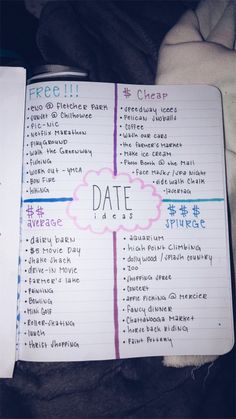 FREE!!!
• ENO @ Fletcher Park
• sunset @ Chilhowee
• Pic-nic
• Netflix Marathon
• Playground
• walk the Greenway
• fishing
• work out - YMCA
• Bon Fire
• hiking
$ Cheap
• speedway icees
• Pelican Snoballs
• Coffee
• wash our cars
• the Farmer's Market
• Make ice cream
• Photo Booth @ the Mall
• Face Masks / Spa Night
• side walk Chalk
• lasertag
DATE
ideas
$$
average
• dairy barn
• $5 Movie Day
• shake shack
• drive-in Movie
• farmer's lake
• Painting
• Bowling
• Mini Golf
• Roller-skating
• lunch
• thrift shopping
$$$
SPLURGE
• aquarium
• high Point Climbing
• dollywood / splash country
• zoo
• shopping spree
• concert
• apple picking @ Mercier
• fancy dinner
• Chattanooga Market
• horse back riding
• Paint Pottery